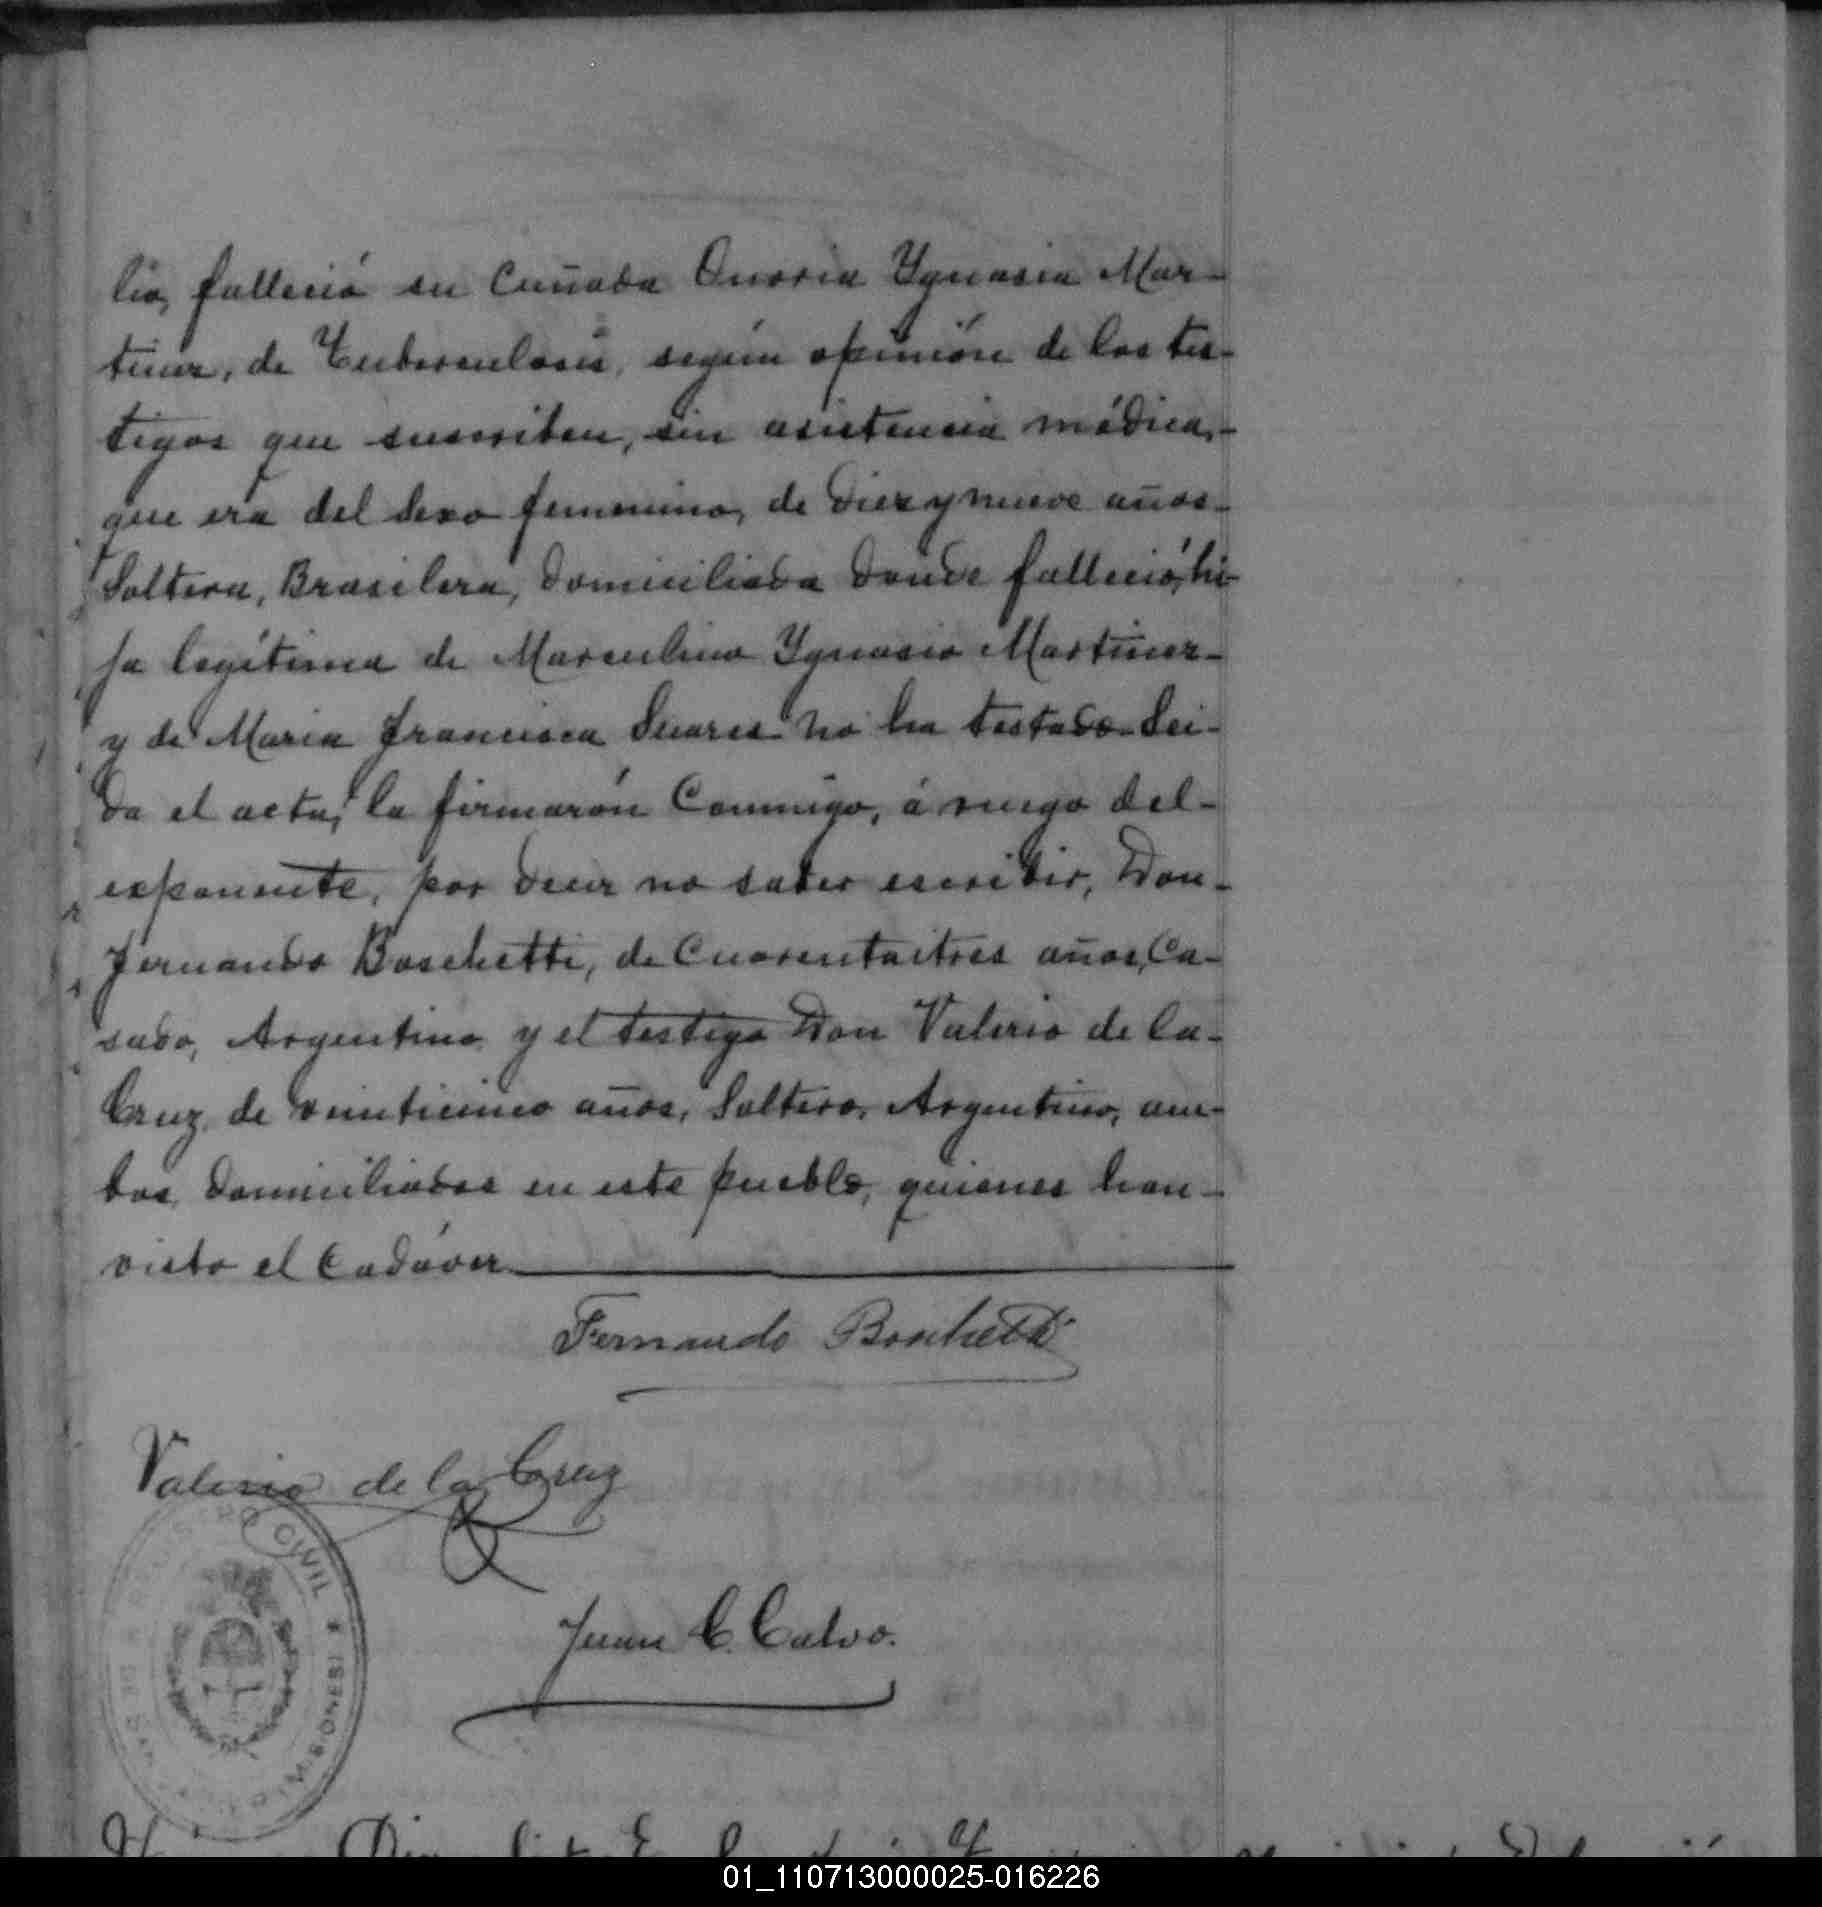 lio, falleció su Cuñada Onoria Ygnasia Mar-
tinez, de Tuberculosis, según opinión de los tes-
tigos que suscriben, sin asistencia médica,-
que era del sexo femenino, de diez y nueve años-
Soltera, Brasilera, domiciliada donde falleció, hi-
ja legítima de Marculino Ygnasio Martinez-
y de Maria Francisca Suares no ha testado. Lei-
da el acta, la firmarón Conmigo, á ruego del-
exponente, por decir no saber escribir, Don-
Fernando Boschetti, de Cuarentaitres años, Ca-
sado, Argentino y el testigo Don Valerio de la-
Cruz, de veinticinco años, Soltero, Argentino, am-
bos domiciliados en este pueblo, quienes han-
visto el Cadáver
Fernando Boschetti
Valerio de la Cruz
REGISTRO CIVIL
DE SAN
(MISIONES)
Juan C. Calvo.
01_110713000025-016226